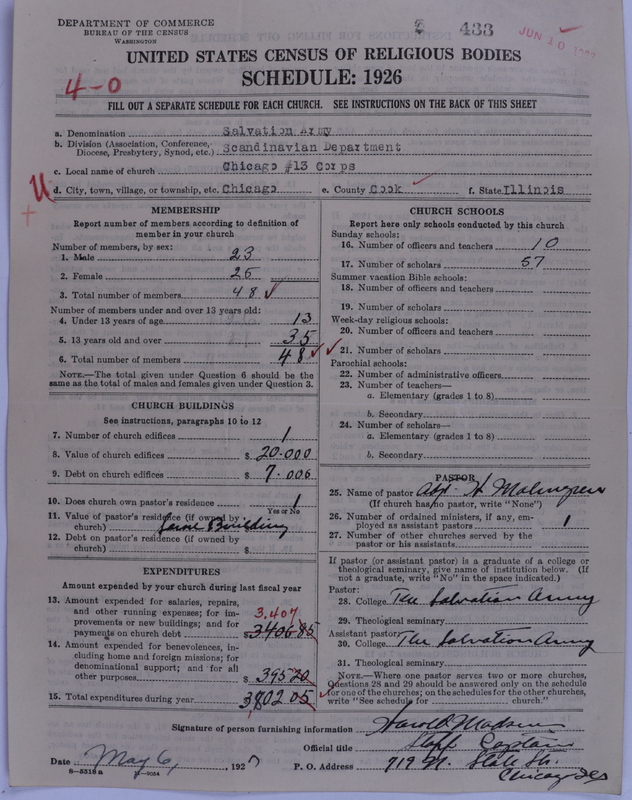 DEPARTMENT OF COMMERCE
BUREAU OF THE CENSUS
WASHINGTON
433
JUN 10
UNITED STATES CENSUS OF RELIGIOUS BODIES
SCHEDULE: 1926
4-0
FILL OUT A SEPARATE SCHEDULE FOR EACH CHURCH. SEE INSTRUCTIONS ON THE BACK OF THIS SHEET
a. Denomination Salvation Army
b. Division (Association, Conference, Diocese, Presbytery, Synod, etc.) Scandinavian Department
c. Local name of church Chicago #13 Corps
U d. City, town, village, or township, etc. Chicago e. County Cook f. State Illinois
MEMBERSHIP
Report number of members according to definition of
member in your church
Number of members, by sex:
1. Male 23
2. Female 25
3. Total number of members 48
Number of members under and over 13 years old:
4. Under 13 years of age 13
5. 13 years old and over 35
6. Total number of members 48
NOTE.—The total given under Question 6 should be
same as the total of males and females given under Question 3.
CHURCH BUILDINGS
See instructions, paragraphs 10 to 12
7. Number of church edifices 1
8. Value of church edifices $ 20.000
9. Debt on church edifices $ 7.006
10. Does church own pastor's residence 1
Yes or No
11. Value of pastor's residence (if owned by
church) same building
12. Debt on pastor's residence (if owned by
church) $
EXPENDITURES
Amount expended by your church during last fiscal year
13. Amount expended for salaries, repairs,
and other running expenses; for im-
provements or new buildings; and for 3.407
payments on church debt $ 3406 85
14. Amount expended for benevolences, in-
cluding home and foreign missions; for
denominational support; and for all
other purposes $ 395 20
15. Total expenditures during year 3802 05
CHURCH SCHOOLS
Report here only schools conducted by this church
Sunday schools:
16. Number of officers and teachers 10
17. Number of scholars 57
Summer vacation Bible schools:
18. Number of officers and teachers
19. Number of scholars
Week-day religious schools:
20. Number of officers and teachers
21. Number of scholars
Parochial schools:
22. Number of administrative officers
23. Number of teachers—
a. Elementary (grades 1 to 8)
b. Secondary
24. Number of scholars—
a. Elementary (grades 1 to 8)
b. Secondary
PASTOR
25. Name of pastor Adj. H Malmgren
(If church has no pastor, write "None")
26. Number of ordained ministers, if any, em-
ployed as assistant pastors 1
27. Number of other churches served by the
pastor or his assistants
If pastor (or assistant pastor) is a graduate of a college or
theological seminary, give name of institution below. (If
not a graduate, write "No" in the space indicated.)
Pastor:
28. College The Salvation Army
29. Theological seminary
Assistant pastor:
30. College The Salvation Army
31. Theological seminary
NOTE.—Where one pastor serves two or more churches,
Questions 28 and 29 should be answered only on the schedule
for one of the churches; on the schedules for the other churches,
write "See schedule for church."
Signature of person furnishing information Harold Madsen
Official title Staff Captain
Date May 6, 1927 P. O. Address 719 N. State St.
8—5518a Chicago Ills